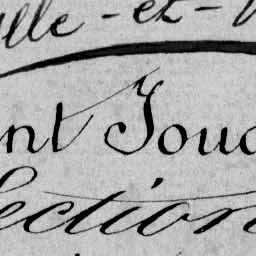 ille-et-V
nt Joua
ection